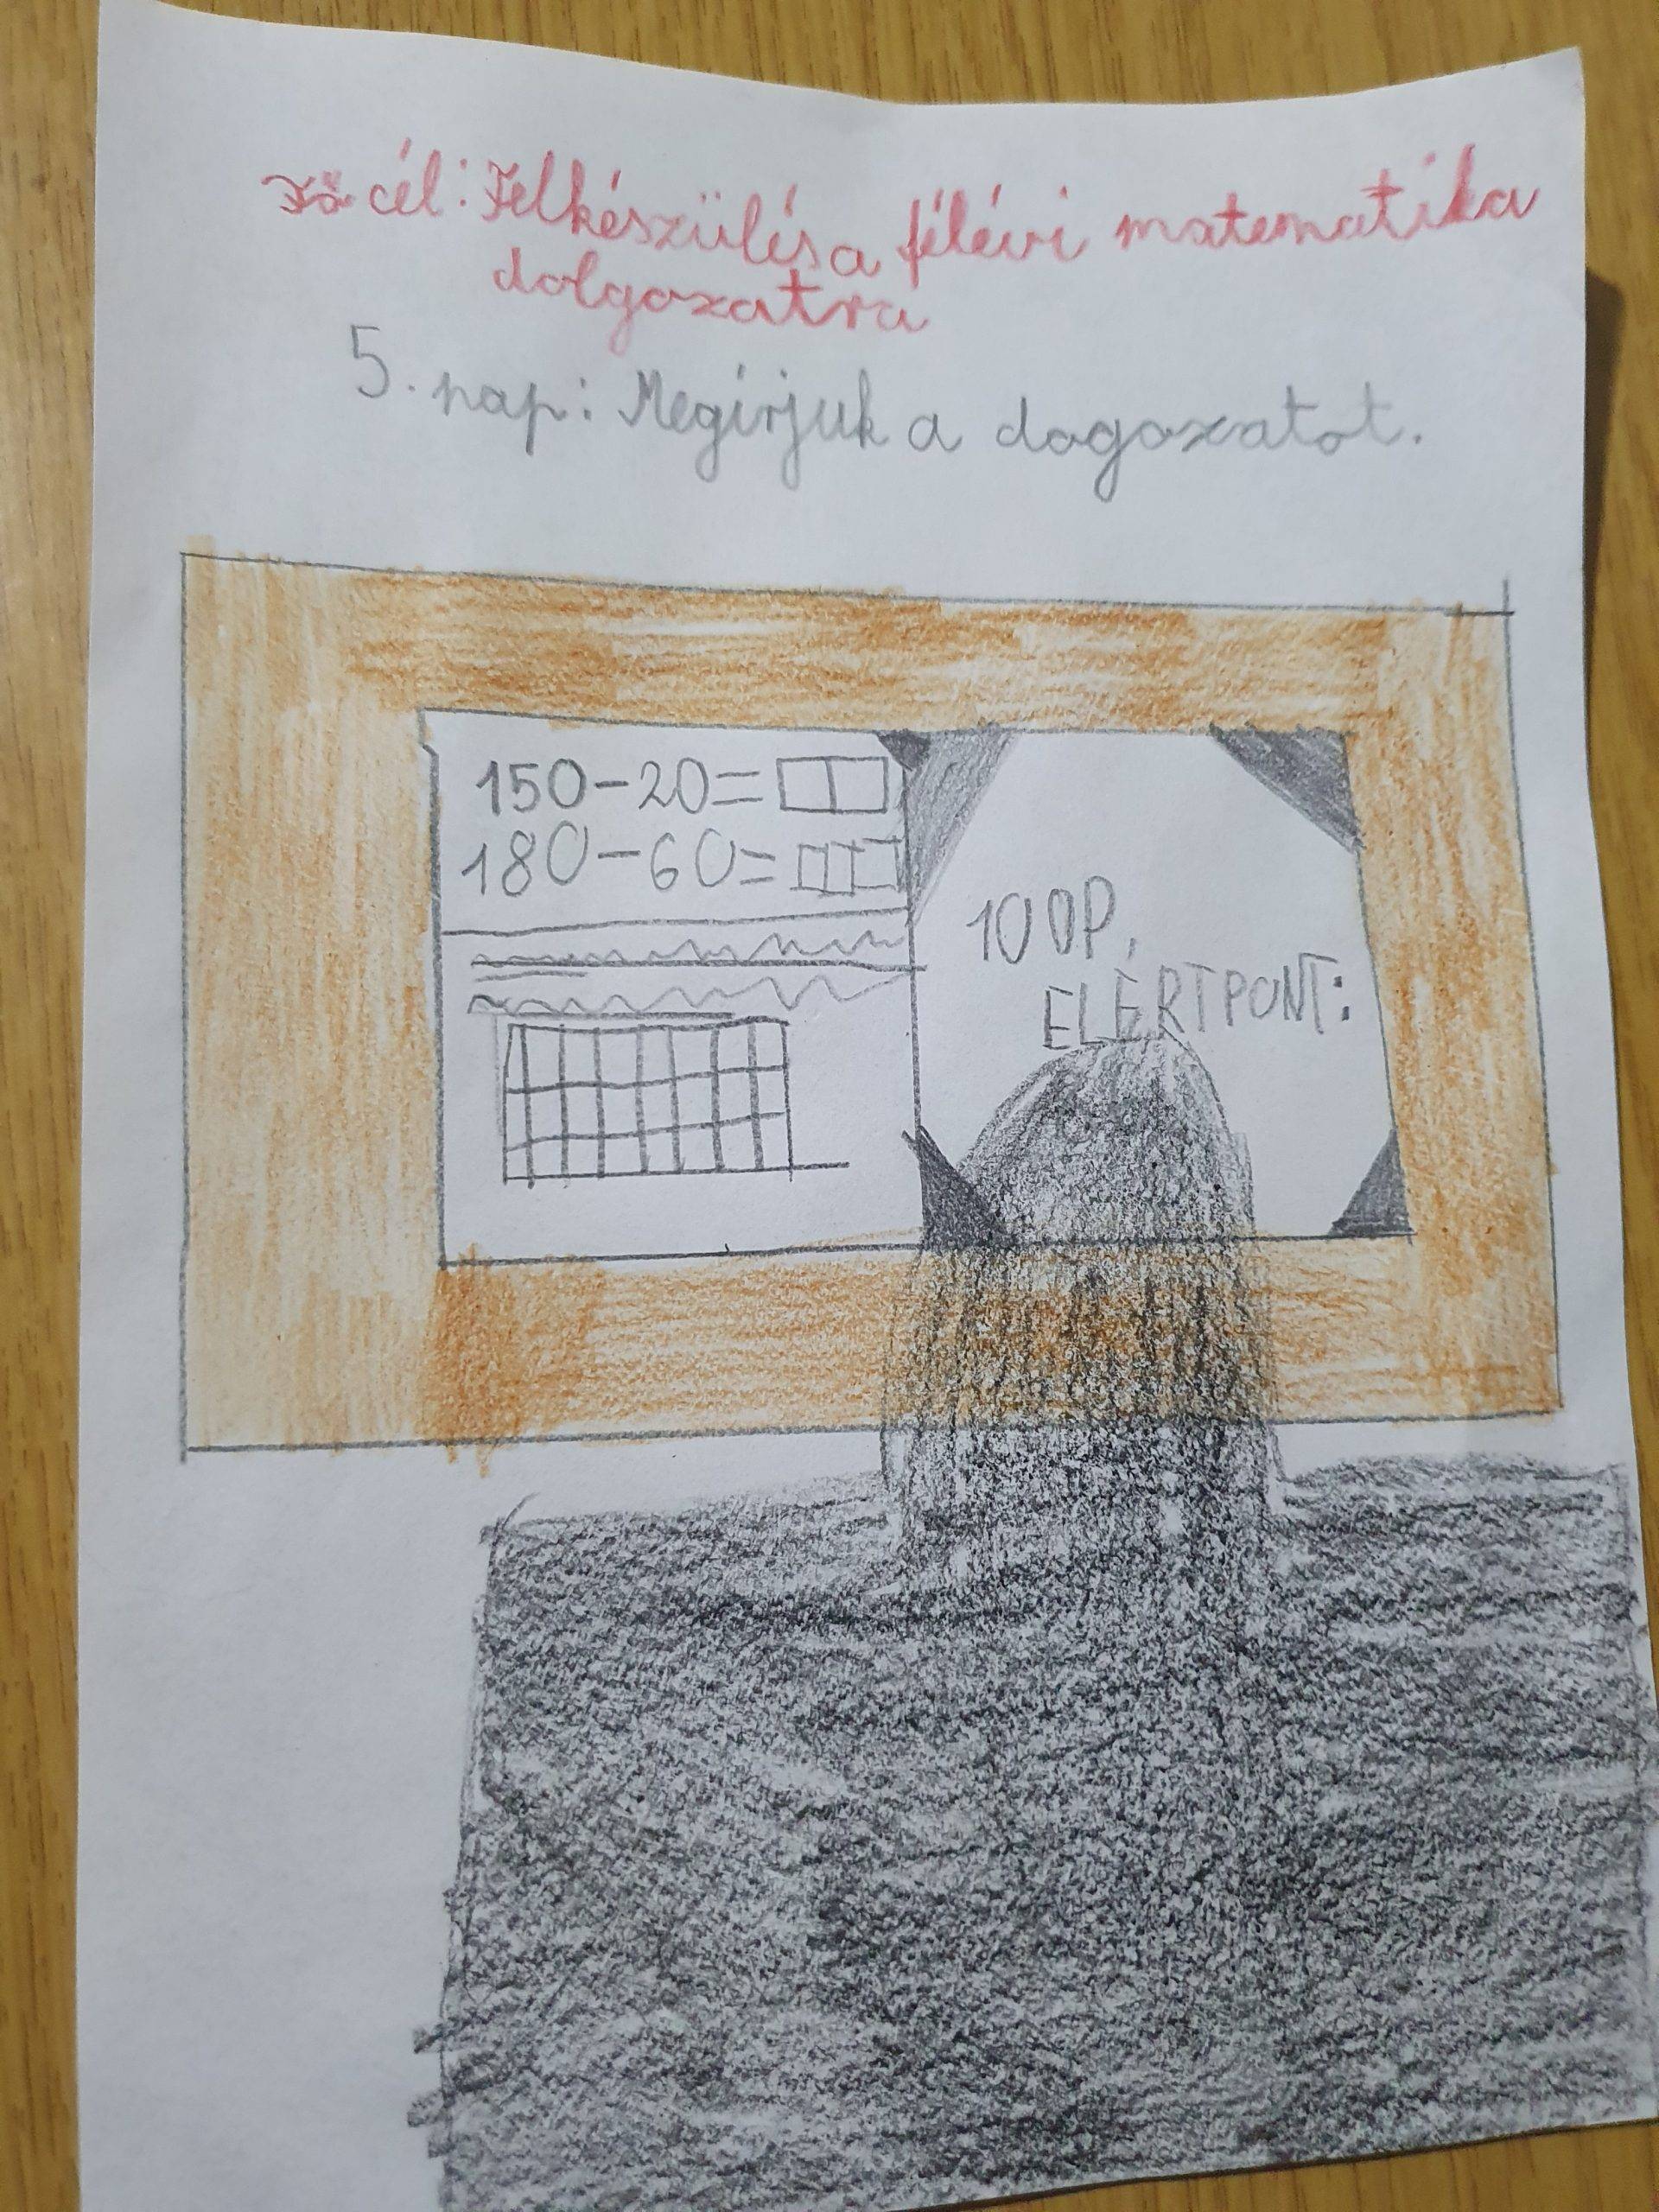 Fő cél: Felkészülés a félévi matematika
dolgozatra
5. nap: Megírjuk a dogozatot.
150-20=
180-60=
100P,
ELÉRTPONT: